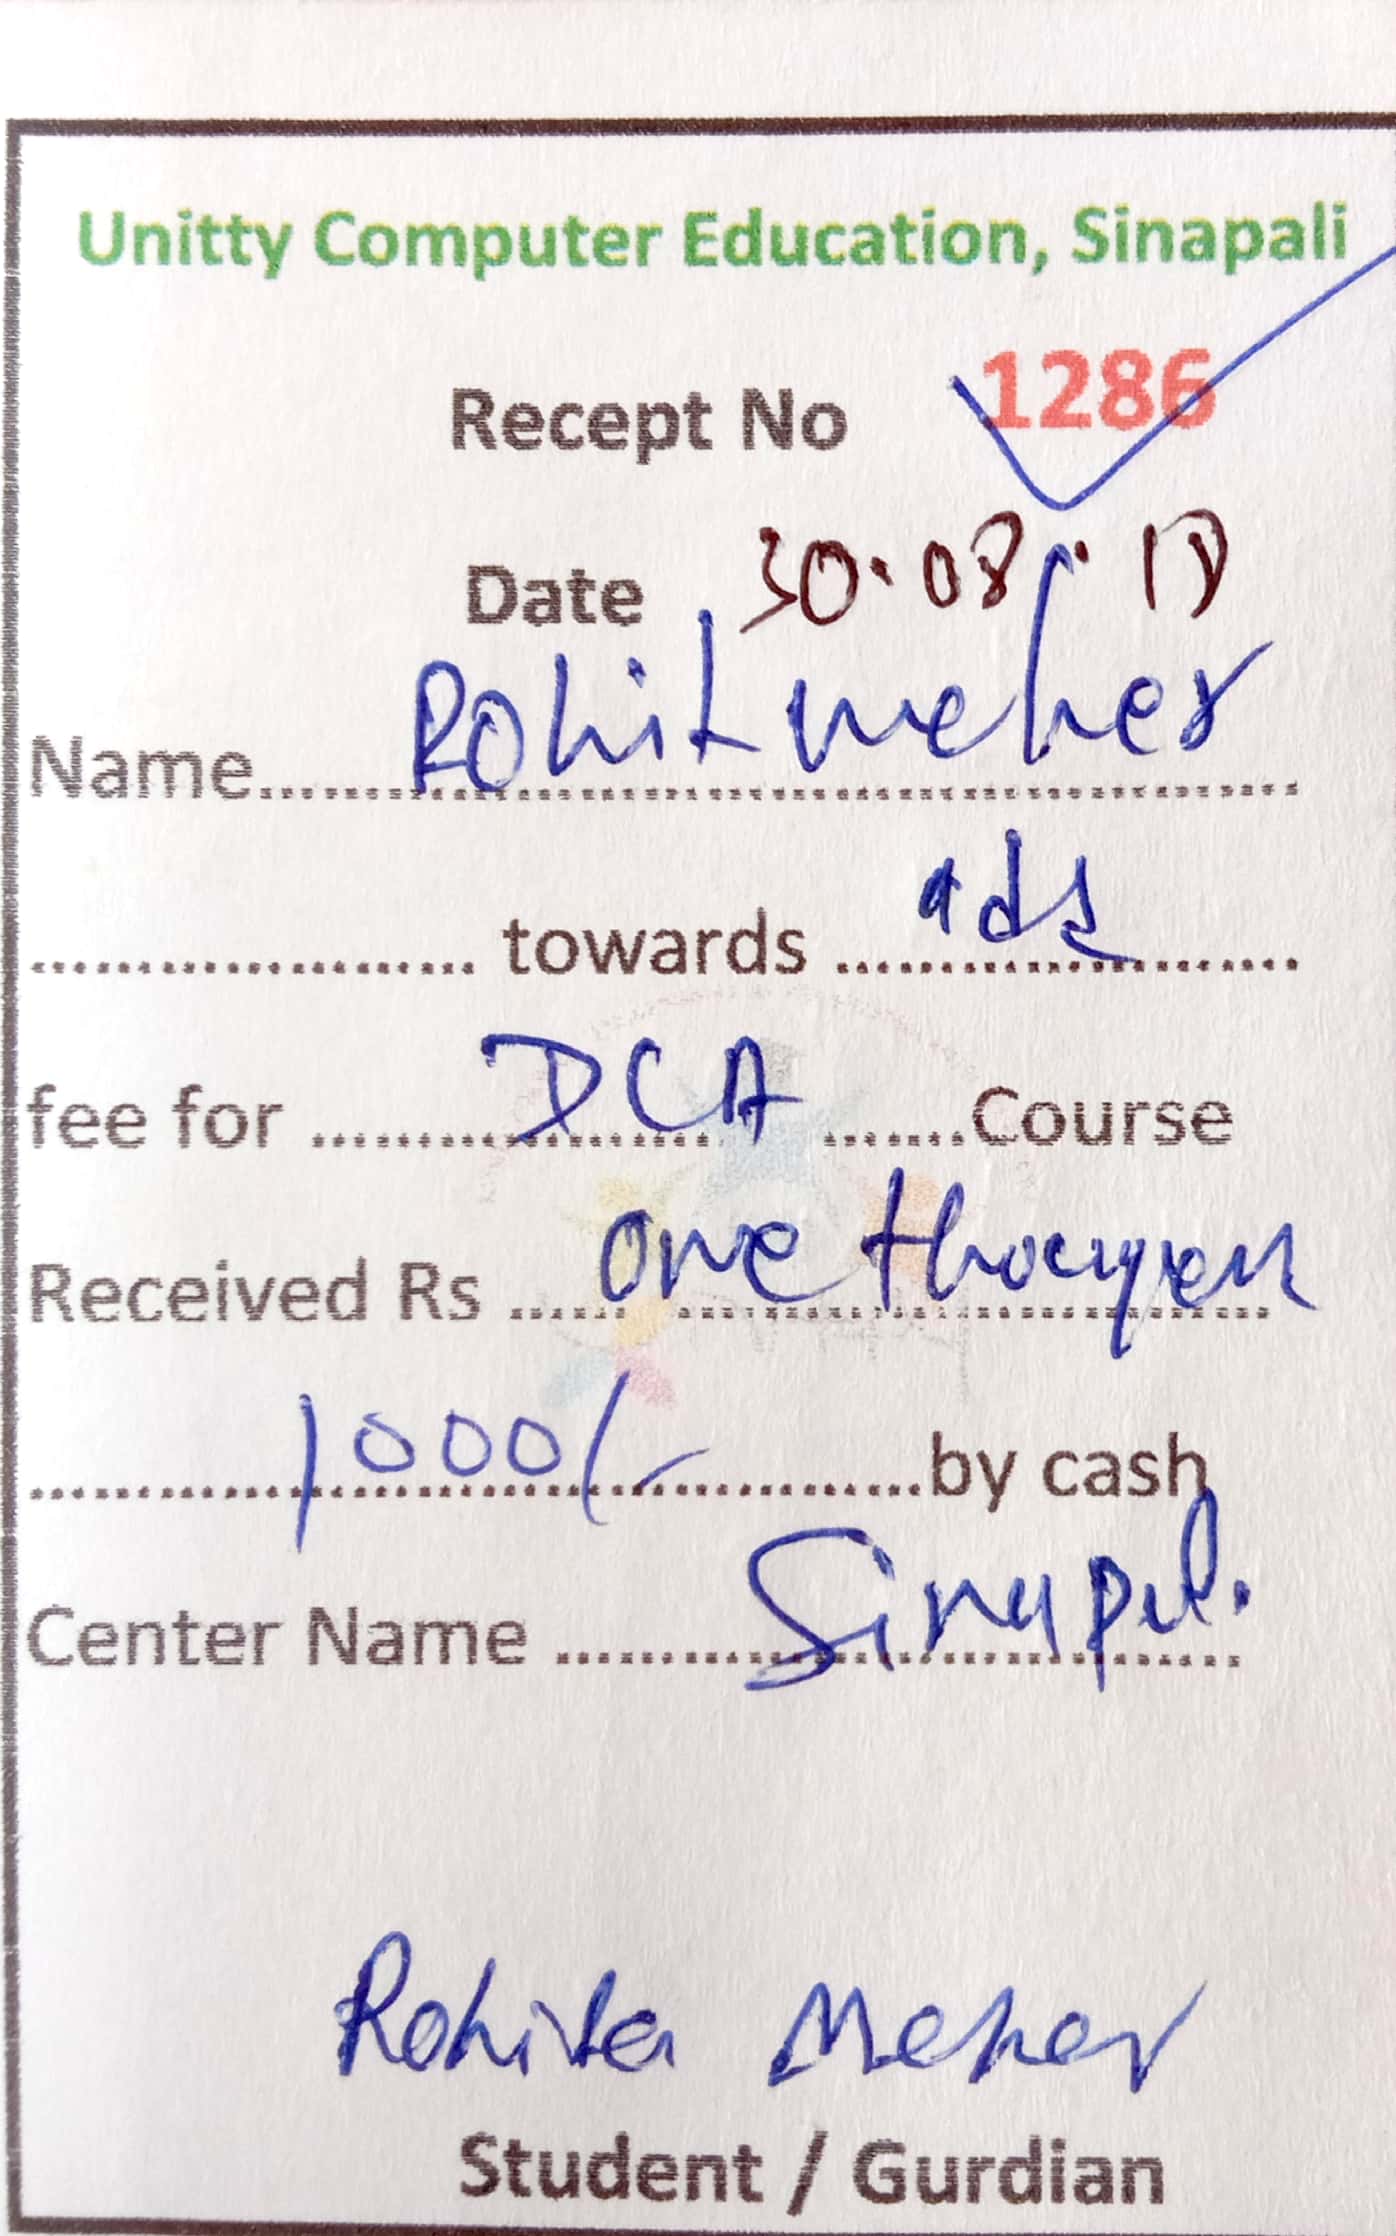 Unitty Computer Education, Sinapali
Recept No 1286
Date 30.08.18
Name.......Rohit meher.......
.................... towards ....................
fee for .......DCA.......Course
Received Rs .......One
.......1000/-.......by cash
Center Name ....................
Rohita Meher
Student / Gurdian